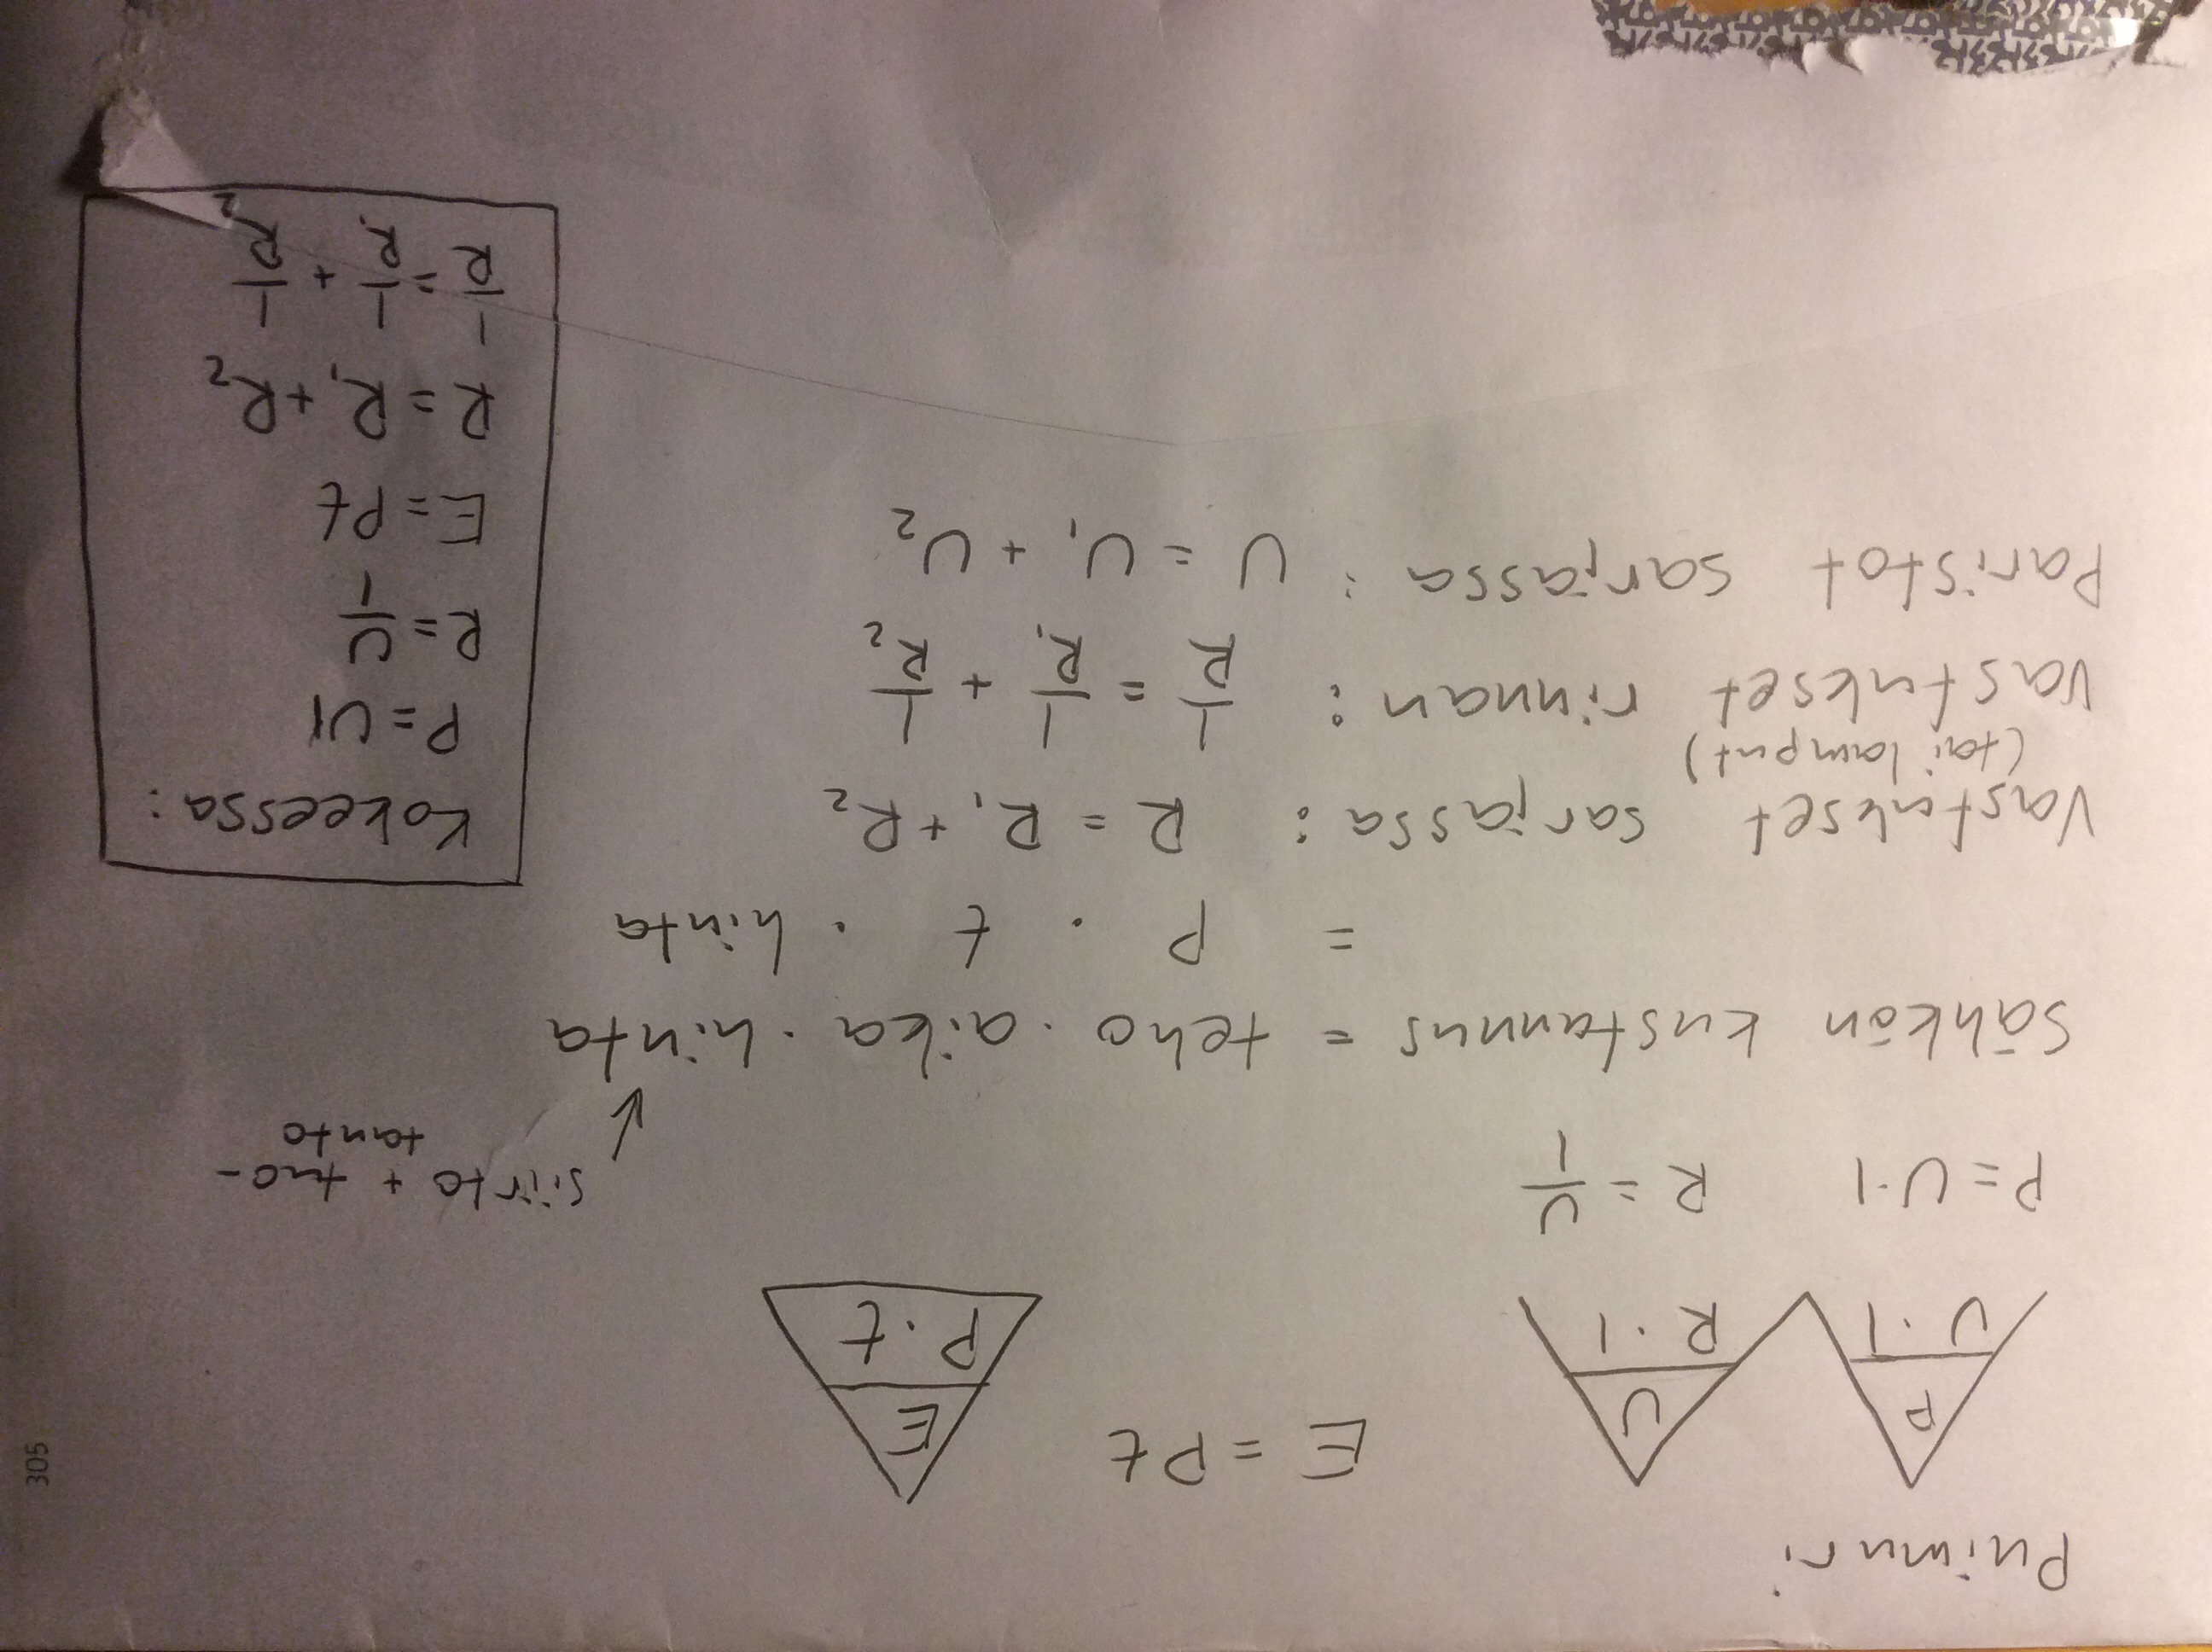 Puimuri
P
U·I
U
R·I
E = Pt
E
P·t
P = U·I
R = U/I
siirto + tuo-
tanto
sähkön kustannus = teho · aika · hinta
= P · t · hinta
Vastukset sarjassa: R = R₁ + R₂
(tai lamput)
Vastukset rinnan: 1/R = 1/R₁ + 1/R₂
Paristot sarjassa: U = U₁ + U₂
Kokeessa:
P = UI
R = U/I
E = Pt
R = R₁ + R₂
1/R = 1/R₁ + 1/R₂
305